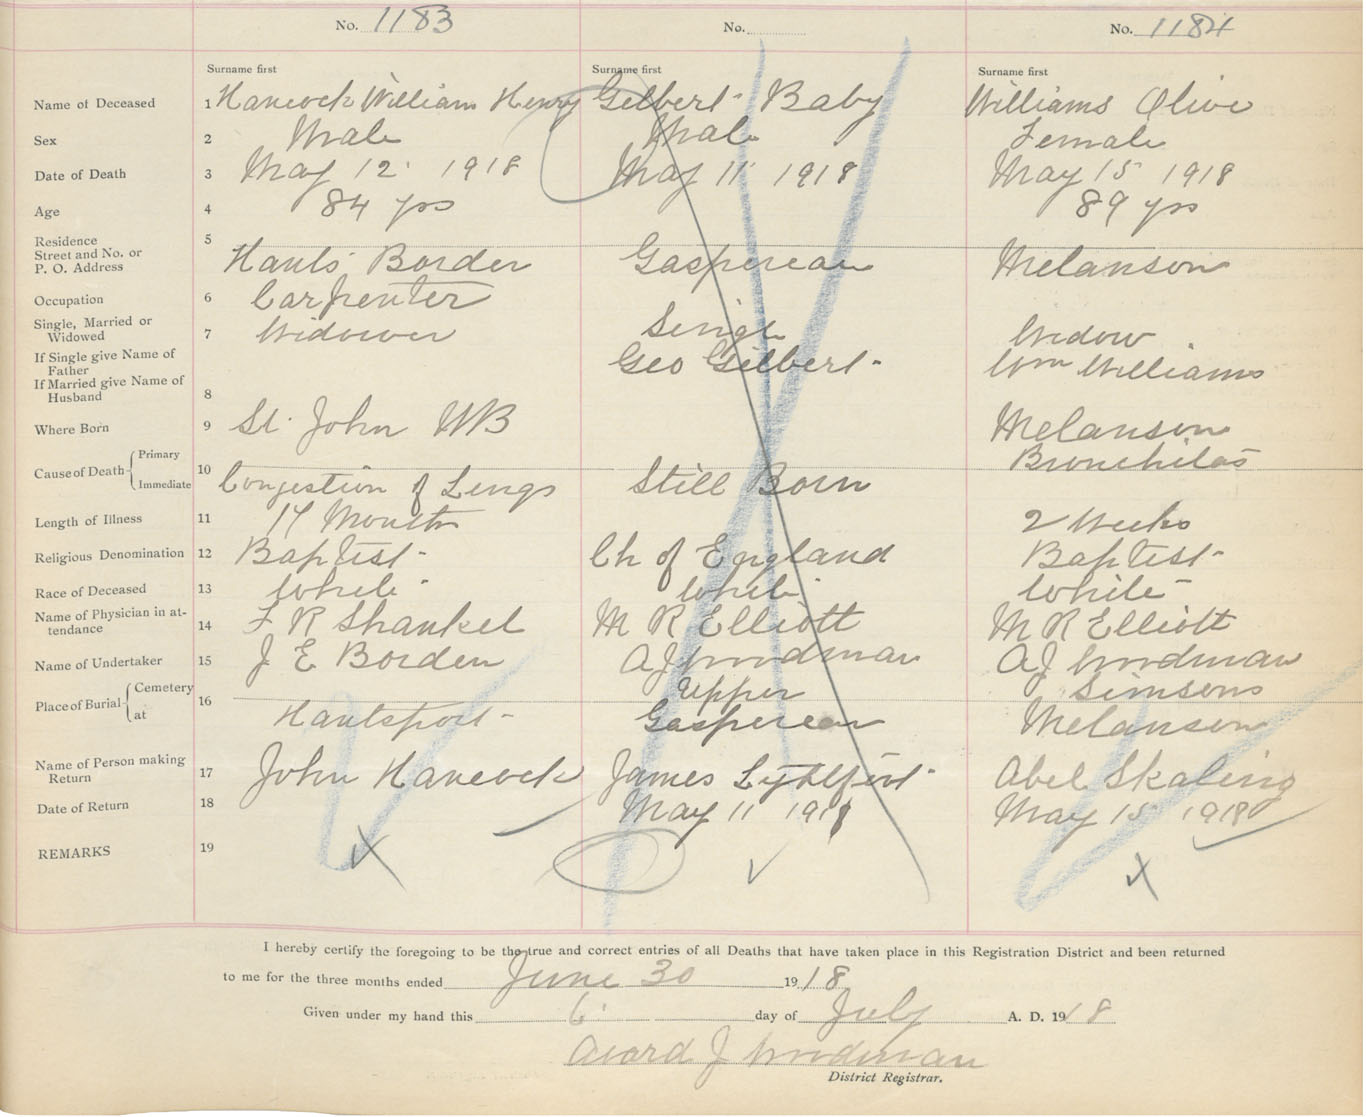 No. 1183 No. No. 1184
Surname first Surname first Surname first
Name of Deceased 1 Hancock William Henry Gilbert Baby Williams Olive
Sex 2 Male Male Female
Date of Death 3 May 12 1918 May 11 1918 May 15 1918
Age 4 84 yrs 89 yrs
Residence 5
Street and No. or
P. O. Address Hants Border Gaspereau Melanson
Occupation 6 Carpenter
Single, Married or
Widowed 7 Widower Single Widow
If Single give Name of
Father Geo Gilbert Wm Williams
If Married give Name of
Husband 8
Where Born 9 St. John NB Melanson
Cause of Death Primary 10 Bronchitas
Immediate Congestion of Lungs Still Born
Length of Illness 11 17 Months 2 Weeks
Religious Denomination 12 Baptist Ch of England Baptist
Race of Deceased 13 White White White
Name of Physician in at-
tendance 14 F R Shankel M R Elliott M R Elliott
Name of Undertaker 15 J E Borden A J Woodman A J Woodman
Place of Burial Cemetery 16 Upper Simsons
at Hantsport Gaspereau Melanson
Name of Person making
Return 17 John Hancock James Abel Skaling
Date of Return 18 May 11 1918 May 15 1918
REMARKS 19
I hereby certify the foregoing to be the true and correct entries of all Deaths that have taken place in this Registration District and been returned
to me for the three months ended June 30 1918
Given under my hand this 6 day of July A. D. 1918
Avard J Woodman
District Registrar.